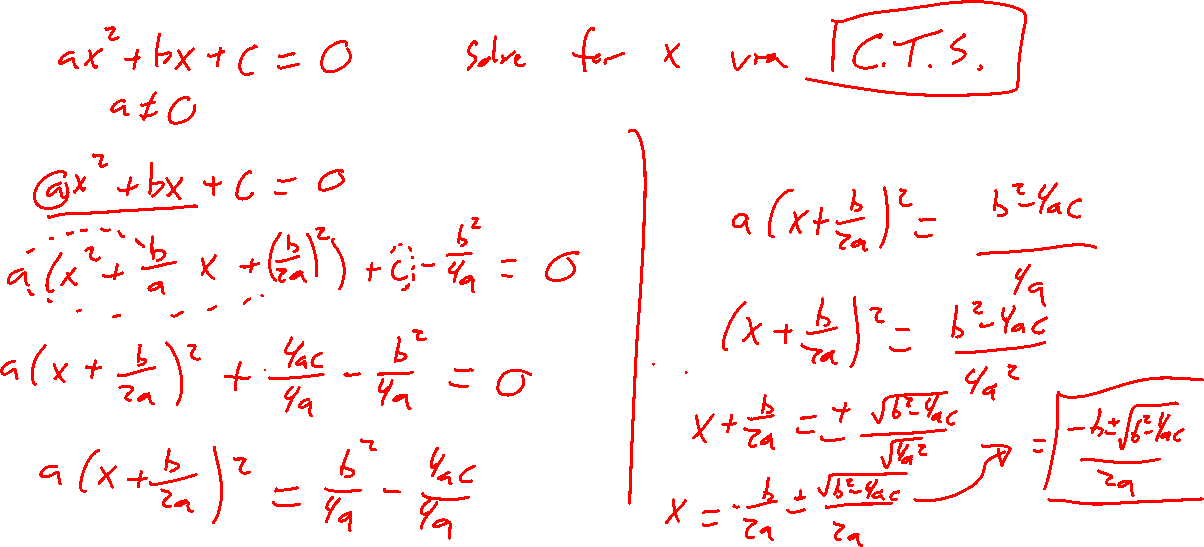 ax² + bx + c = 0 Solve for x via C.T.S.
a ≠ 0
ax² + bx + c = 0
a(x² + b/a x + (b/2a)²) + c - b²/4a = 0
a(x + b/2a)² + 4ac/4a - b²/4a = 0
a(x + b/2a)² = b²/4a - 4ac/4a
a(x + b/2a)² = (b²-4ac)/4a
(x + b/2a)² = (b²-4ac)/4a²
x + b/2a = ± √(b²-4ac)/√(4a²)
x = -b/2a ± √(b²-4ac)/2a = (-b±√(b²-4ac))/2a